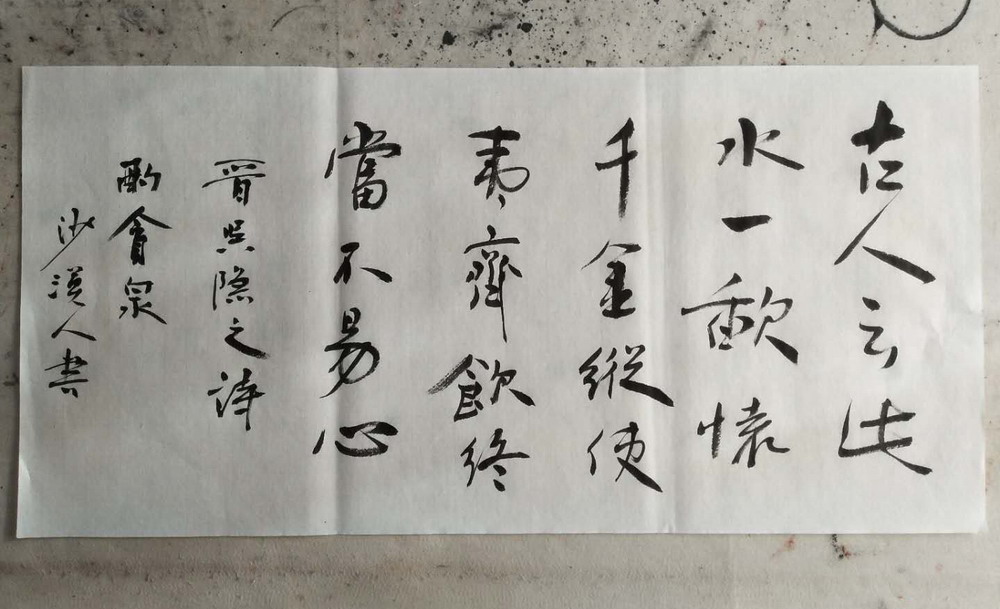 古人云此
水一歃懷
千金縱使
夷齊飲終
當不易心
晋吴隐之詩
酌貪泉
沙漠人書